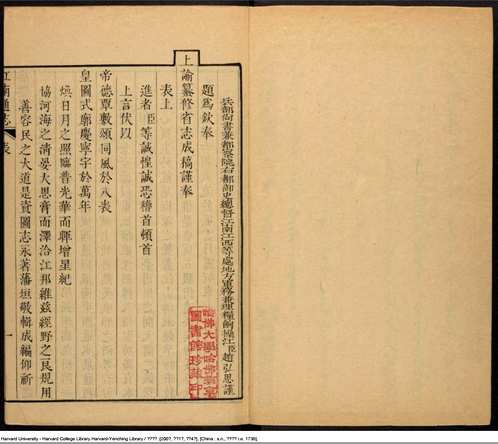 兵部尚書兼都察院右都御史總督江南江西等處地方軍務兼理糧餉操江臣趙弘恩謹
題爲欽奉
上諭纂修省志成稿謹奉
表上
進者臣等誠惶誠恐稽首頓首
上言伏以
帝德覃敷頌同風於八表
皇圖式廓慶寧宇於萬年
煥日月之照臨普光華而聯增星紀
協河海之清晏大恩膏而澤洽江邦維茲經野之良規用
善容民之大道是資圖志永著藩垣敬輯成編仰祈
江南通志
表
一
哈佛大學哈佛燕京
圖書館珍藏印
Harvard University - Harvard College Library Harvard-Yenching Library / ????. [200?, ??1?, ??4?]. [China : s.n., ???? i.e. 1736].